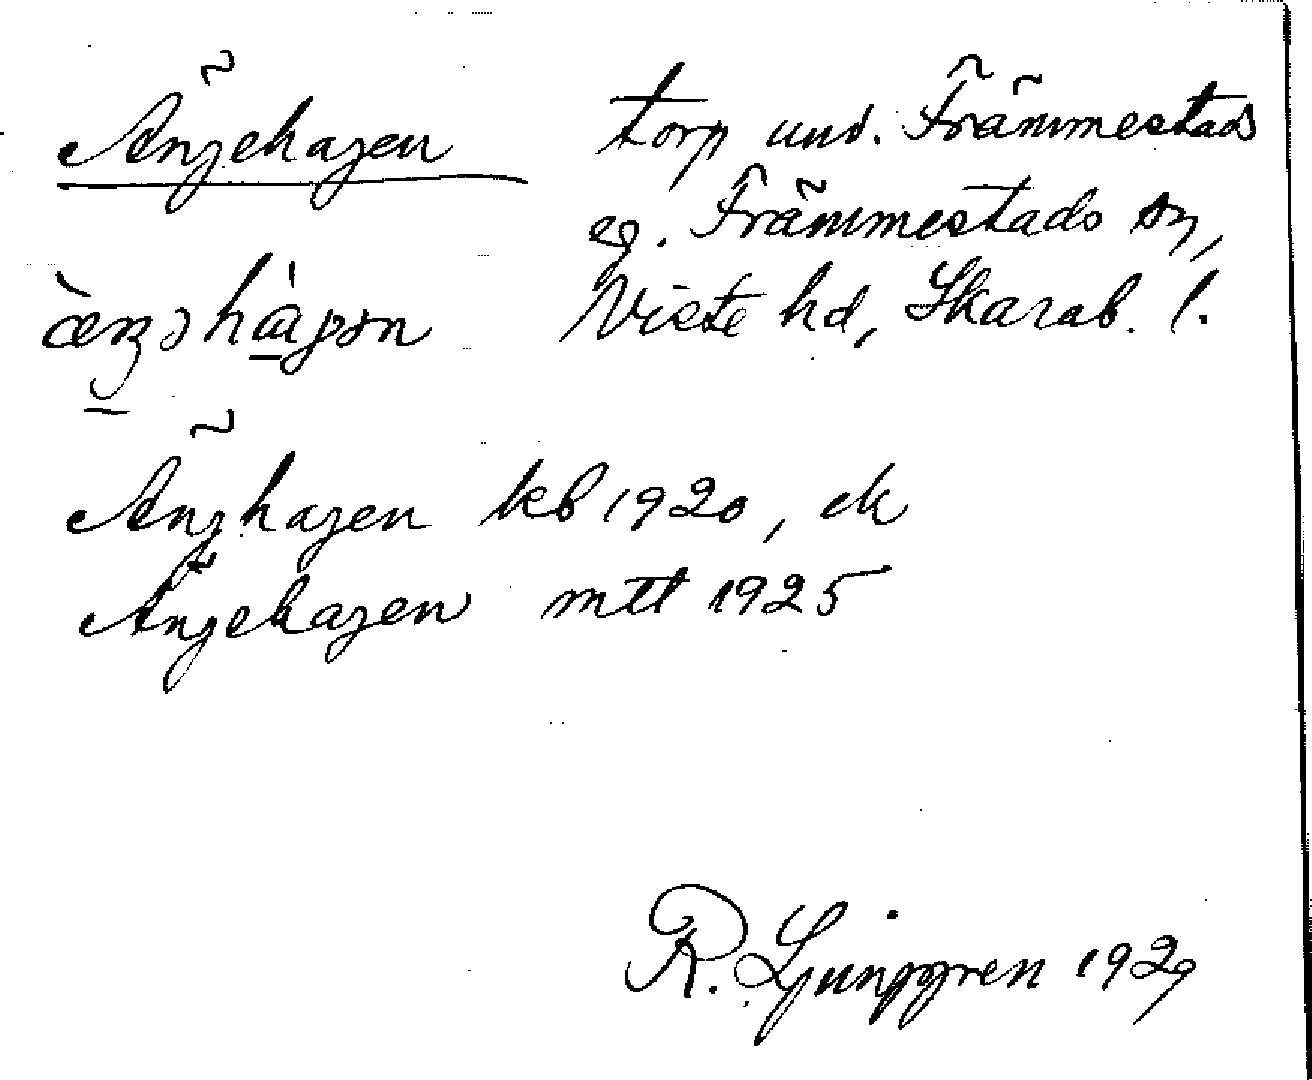 Ängehagen torp und. Främmestads
eg. Främmestads sn,
Viste hd, Skarab. l.
Änghagen kb 1920, ek
Ängehagen mtt 1925
R. Ljunggren 1929